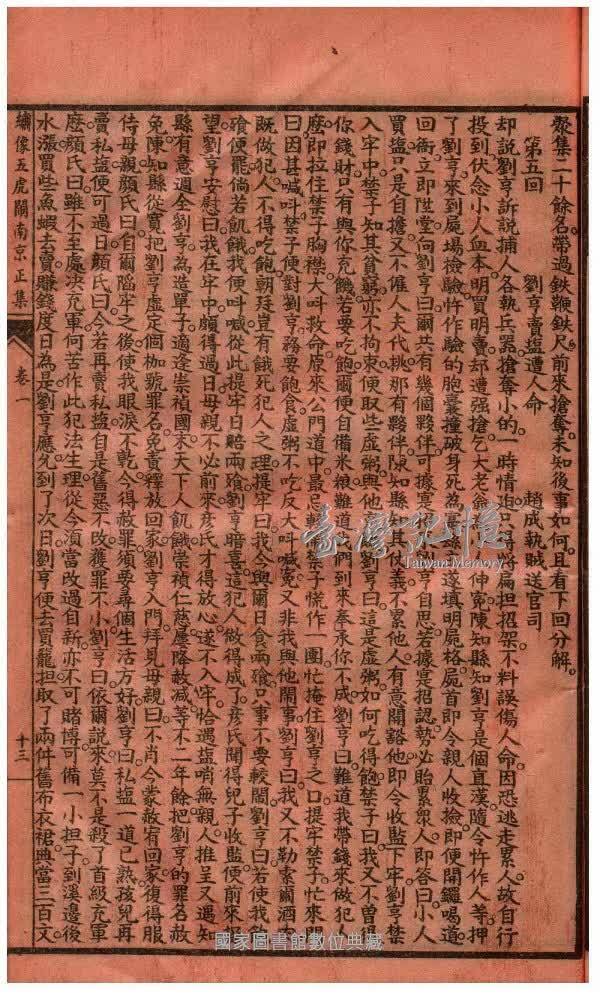 聚集二十餘名帶過鐵鞭鉄尺前來搶奪未知後事如何且看下回分解
第五回 劉亨賣塩遭人命 趙成執賊送官司
却説劉亨訴說捕人各執兵器搶奪小的一時情迫只得將扁担招架不料誤傷人命因恐逃走累人故自行
投到伏念小人血本明買明賣却遭强搶乞大老爺伸寃陳知縣知劉亨是個直漢隨令忤作人等押
了劉亨來到屍場檢驗忤作驗的胞囊撞破身死為遂填明屍格屍首即令親人收撿即便開鑼喝道
回衙立即陞堂向劉亨曰爾共有幾個夥伴可據寔劉亨自思若據寔招認勢必貽累衆人即答曰小人
買塩只是自擔又不僱人夫代挑那有夥伴陳知縣其仗義不累他人有意開豁他即令收監下牢劉亨禁
入牢中禁子知其貧窮亦不拘束便取些虛粥與他劉亨曰這是虛粥如何吃得飽禁子曰我又不曾得
你錢財只有與你充饑若要吃飽爾便自備米粮難道我們到來奉承你不成劉亨曰難道我帶錢來做犯人
麼即拉住禁子胸襟大叫救命原來公門道中最忌禁子慌作一團忙掩住劉亨之口提牢禁子忙來問
曰因甚喊叫禁子便對劉亨務要飽食虛粥不吃反大叫喊寃又非我與他閙事劉亨曰我又不勒索爾酒肉
既做犯人不得吃飽朝廷豈有餓死犯人之理提牢曰我今與爾日食兩飡只事不要較鬧劉亨曰若使我飽
飡便罷倘若飢餓我便叫喊從此提牢日賠兩飡劉亨暗喜這犯人做得成了彥氏聞得兒子收監便前來探
望劉亨安慰曰我在牢中頗得過日母親不必前來彥氏才得放心遂不入牢恰遇塩哨無親人推呈又遇知
縣有意週全劉亨為造單子適逢崇禎國末天下人飢餓崇禎仁慈屢降赦减等不二年餘把劉亨的罪名赦
免陳知縣從寛把劉亨虛定個枷號罪名免責釋放回家劉亨入門拜見母親曰不肖今蒙赦宥回家復得服
侍母親顏氏曰自爾陷牢之後使我眼淚不乾今得赦罪須要尋個生活方好劉亨曰私塩一道已熟孩兒再
賣私塩便可過日顏氏曰今若再賣私塩自是舊惡不改獲罪不小劉亨曰依爾説來莫不是殺了首級充軍
麽顏氏曰雖不至處决充軍何苦作此犯法生理從今須當改過自新亦不可賭博可備一小担子到溪邊後
水漲買些魚蝦去賣賺錢度日為是劉亨應允到了次日劉亨便去買籠担取了兩件舊布衣裙典當三百文
繡像五虎閙南京正集 卷一 十三
臺灣記憶
Taiwan Memory
國家圖書館數位典藏